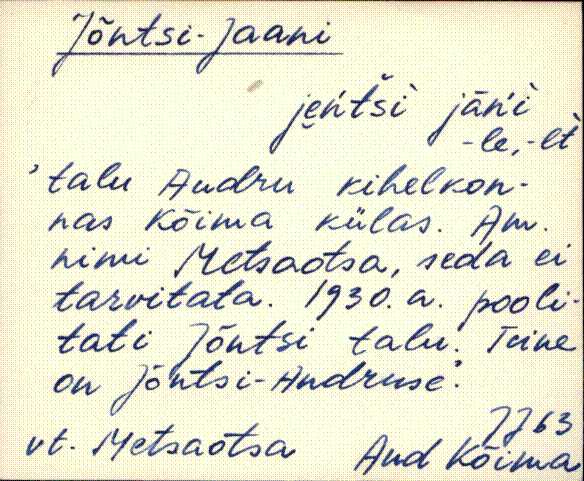 Jõntsi-Jaani
je̮ńtši jāńi
-le, -lt
'talu Audru kihelkon-
nas Kõima külas. Am.
nimi Metsaotsa, seda ei
tarvitata. 1930. a. pooli-
tati Jõntsi talu. Teine
on Jõntsi-Andruse'.
JJ 63
vt. Metsaotsa Aud Kõima